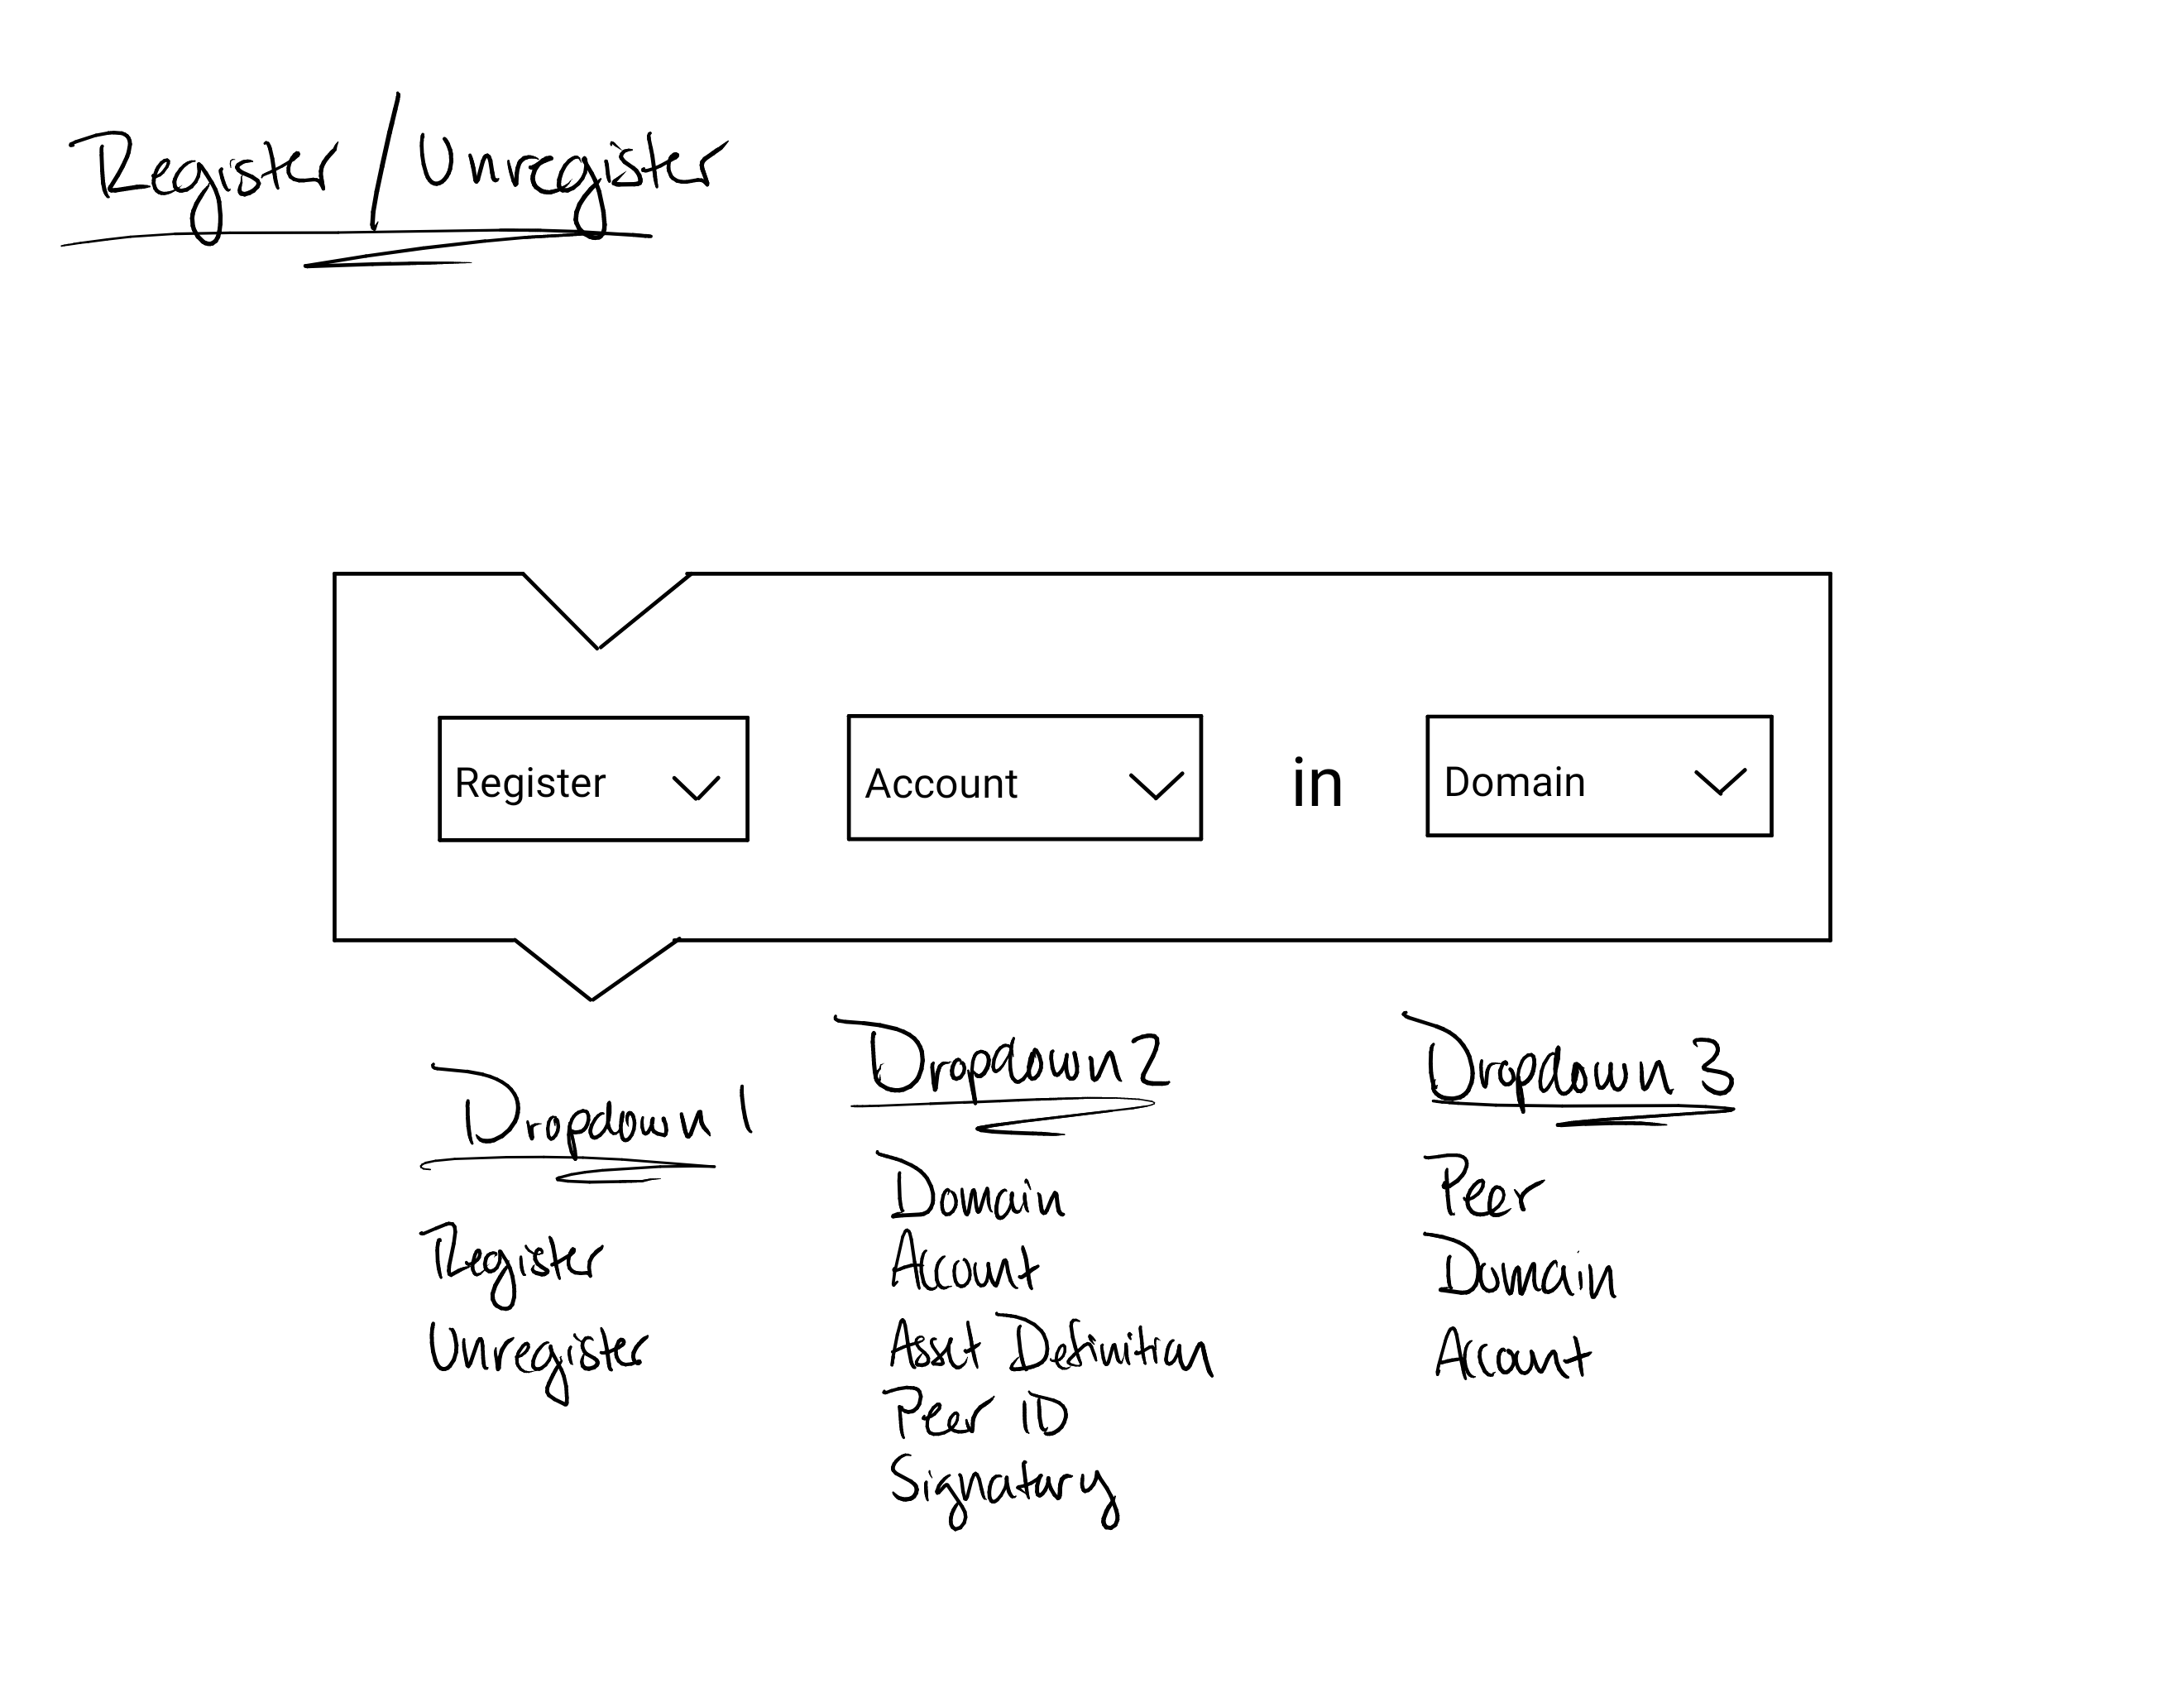 Register/Unregister
Register Account in Domain
Dropdown 1
Register
Unregister
Dropdown 2
Domain
Account
Asset Definition
Peer ID
Signatory
Dropdown 3
Peer
Domain
Account